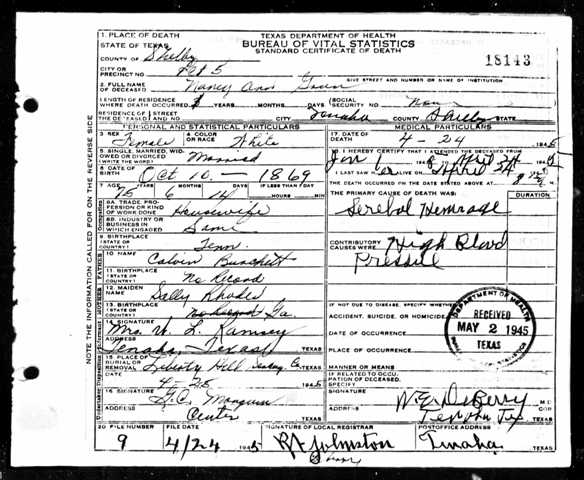 1. PLACE OF DEATH
STATE OF TEXAS
TEXAS DEPARTMENT OF HEALTH
BUREAU OF VITAL STATISTICS
STANDARD CERTIFICATE OF DEATH
COUNTY OF Shelby
18143
CITY OR PRECINCT NO. Pct 5
GIVE STREET AND NUMBER OR NAME OF INSTITUTION
2. FULL NAME OF DECEASED Nancy Ann
LENGTH OF RESIDENCE WHERE DEATH OCCURRED YEARS MONTHS DAYS
SOCIAL SECURITY NO. None
RESIDENCE OF THE DECEASED STREET CITY Tenaha COUNTY Shelby
PERSONAL AND STATISTICAL PARTICULARS
MEDICAL PARTICULARS
3. SEX Female
4. COLOR OR RACE White
17. DATE OF DEATH 4 24 1945
5. SINGLE, MARRIED, WIDOWED OR DIVORCED (WRITE THE WORD) Married
18. I HEREBY CERTIFY THAT I ATTENDED THE DECEASED FROM
Jan 1 April 24
I LAST SAW ALIVE ON April 24
6. DATE OF BIRTH Oct 10 - 1869
THE DEATH OCCURRED ON THE DATE STATED ABOVE AT
7. AGE 75 YEARS 6 MONTHS 14 DAYS IF LESS THAN 1 DAY HOURS MIN.
THE PRIMARY CAUSE OF DEATH WAS:
DURATION
8A. TRADE, PROFESSION OR KIND OF WORK DONE Housewife
Serebal Hemrage
8B. INDUSTRY OR BUSINESS IN WHICH ENGAGED Same
9. BIRTHPLACE (STATE OR COUNTRY) Tenn
CONTRIBUTORY CAUSES WERE: High Blood
10. NAME Calvin Burchett
11. BIRTHPLACE (STATE OR COUNTRY) No Record
12. MAIDEN NAME Sally Rhodes
13. BIRTHPLACE (STATE OR COUNTRY) No Record Ga
IF NOT DUE TO DISEASE, SPECIFY WHETHER:
ACCIDENT, SUICIDE, OR HOMICIDE
DATE OF OCCURRENCE
PLACE OF OCCURRENCE
DEPARTMENT OF HEALTH
RECEIVED
MAY 2 1945
TEXAS
14. SIGNATURE Mrs. W. L. Ramsey
ADDRESS Tenaha, Texas TEXAS
15. PLACE OF BURIAL OR REMOVAL Liberty Hill TEXAS
MANNER OR MEANS
DATE 4-25 1945
IF RELATED TO OCCUPATION OF DECEASED, SPECIFY
16. SIGNATURE
ADDRESS Center TEXAS
SIGNATURE M.D.
ADDRESS Tenaha Tex TEXAS
20. FILE NUMBER 9
FILE DATE 4/24 1945
SIGNATURE OF LOCAL REGISTRAR R A Johnston
POSTOFFICE ADDRESS Tenaha, TEXAS
NOTE THE INFORMATION CALLED FOR ON THE REVERSE SIDE
FATHER
MOTHER